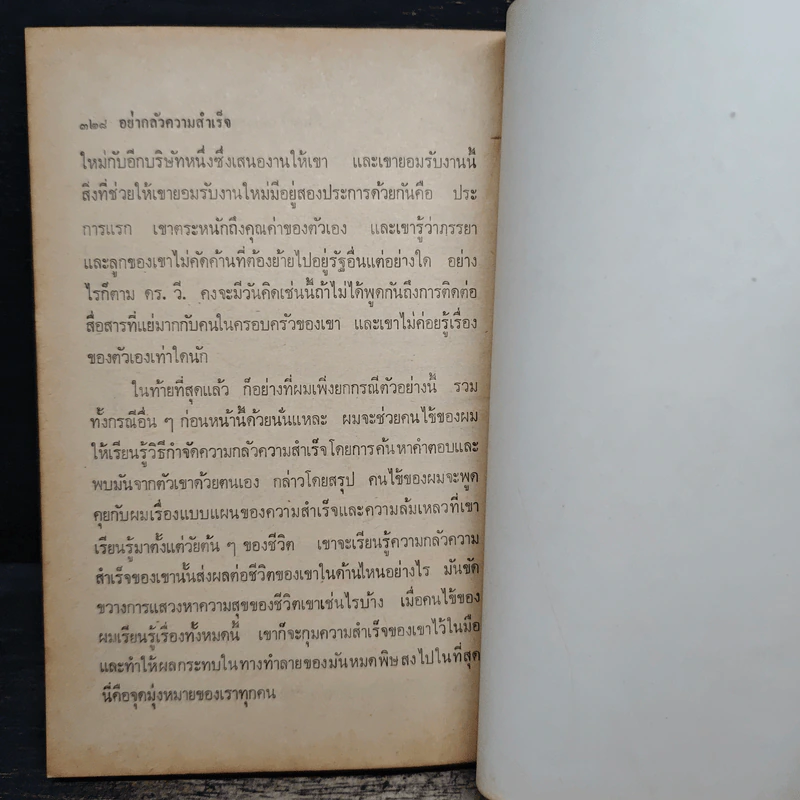 ๓๒๘ อย่ากลัวความสำเร็จ
ใหม่กับอีกบริษัทหนึ่งซึ่งเสนองานให้เขา และเขายอมรับงานนี้
สิ่งที่ช่วยให้เขายอมรับงานใหม่มีอยู่สองประการด้วยกันคือ ประ
การแรก เขาตระหนักถึงคุณค่าของตัวเอง และเขารู้ว่าภรรยา
และลูกของเขาไม่คัดค้านที่ต้องย้ายไปอยู่รัฐอื่นแต่อย่างใด อย่าง
ไรก็ตาม ดร. วี. คงจะมีวันคิดเช่นนี้ถ้าไม่ได้พูดกันถึงการติดต่อ
สื่อสารที่แย่มากกับคนในครอบครัวของเขา และเขาไม่ค่อยรู้เรื่อง
ของตัวเองเท่าใดนัก
ในท้ายที่สุดแล้ว ก็อย่างที่ผมเพิ่งยกกรณีตัวอย่างนี้ รวม
ทั้งกรณีอื่น ๆ ก่อนหน้านี้ด้วยนั่นแหละ ผมจะช่วยคนไข้ของผม
ให้เรียนรู้วิธีกำจัดความกลัวความสำเร็จโดยการค้นหาคำตอบและ
พบมันจากตัวเขาด้วยตนเอง กล่าวโดยสรุป คนไข้ของผมจะพูด
คุยกับผมเรื่องแบบแผนของความสำเร็จและความล้มเหลวที่เขา
เรียนรู้มาตั้งแต่วัยต้น ๆ ของชีวิต เขาจะเรียนรู้ความกลัวความ
สำเร็จของเขานั้นส่งผลต่อชีวิตของเขาในด้านไหนอย่างไร มันขัด
ขวางการแสวงหาความสุขของชีวิตเขาเช่นไรบ้าง เมื่อคนไข้ของ
ผมเรียนรู้เรื่องทั้งหมดนี้ เขาก็จะกุมความสำเร็จของเขาไว้ในมือ
และทำให้ผลกระทบในทางทำลายของมันหมดพิษสงไปในที่สุด
นี่คือจุดมุ่งหมายของเราทุกคน